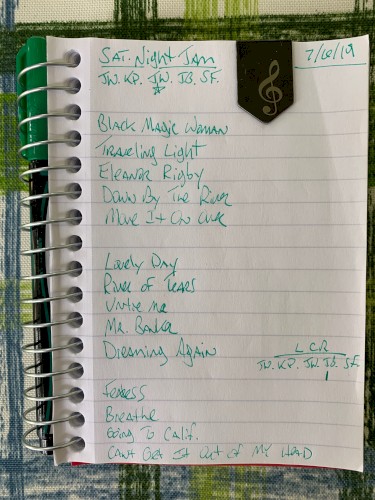 SAT. Night Jam
7/6/19
JW. KP. JW. JB. SF.
Black Magic Woman
Traveling Light
Eleanor Rigby
Down By The River
Move It On Over
Lovely Day
River of Tears
Untie Me
Mr. Banker
Dreaming Again
L C R
JW. KP. JW. JB. SF.
Breathe
Going To Calif.
Can't Get It Out of My Head